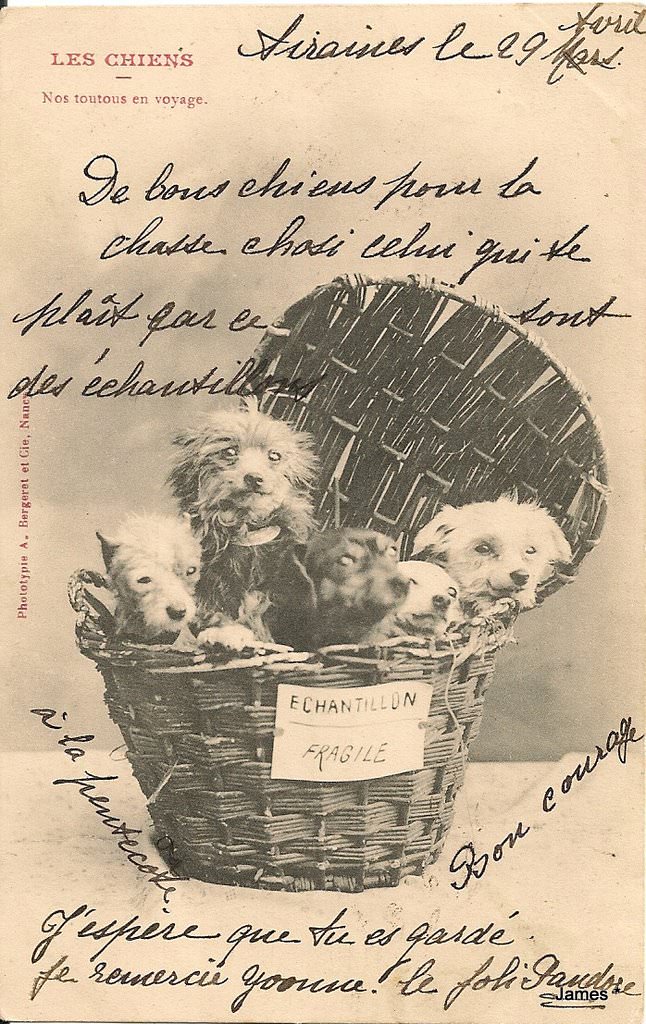 LES CHIENS
Nos toutous en voyage.
Airaines le 29 Avril
Mars.
De bons chiens pour la
chasse chosi celui qui te
plaît car ce sont
des échantillons
Phototypie A. Bergeret et Cie, Nancy
ECHANTILLON
FRAGILE
à la pentecôte.
Bon courage
J'espère que tu es gardé.
je remercie Yvonne. le joli Pandore
James